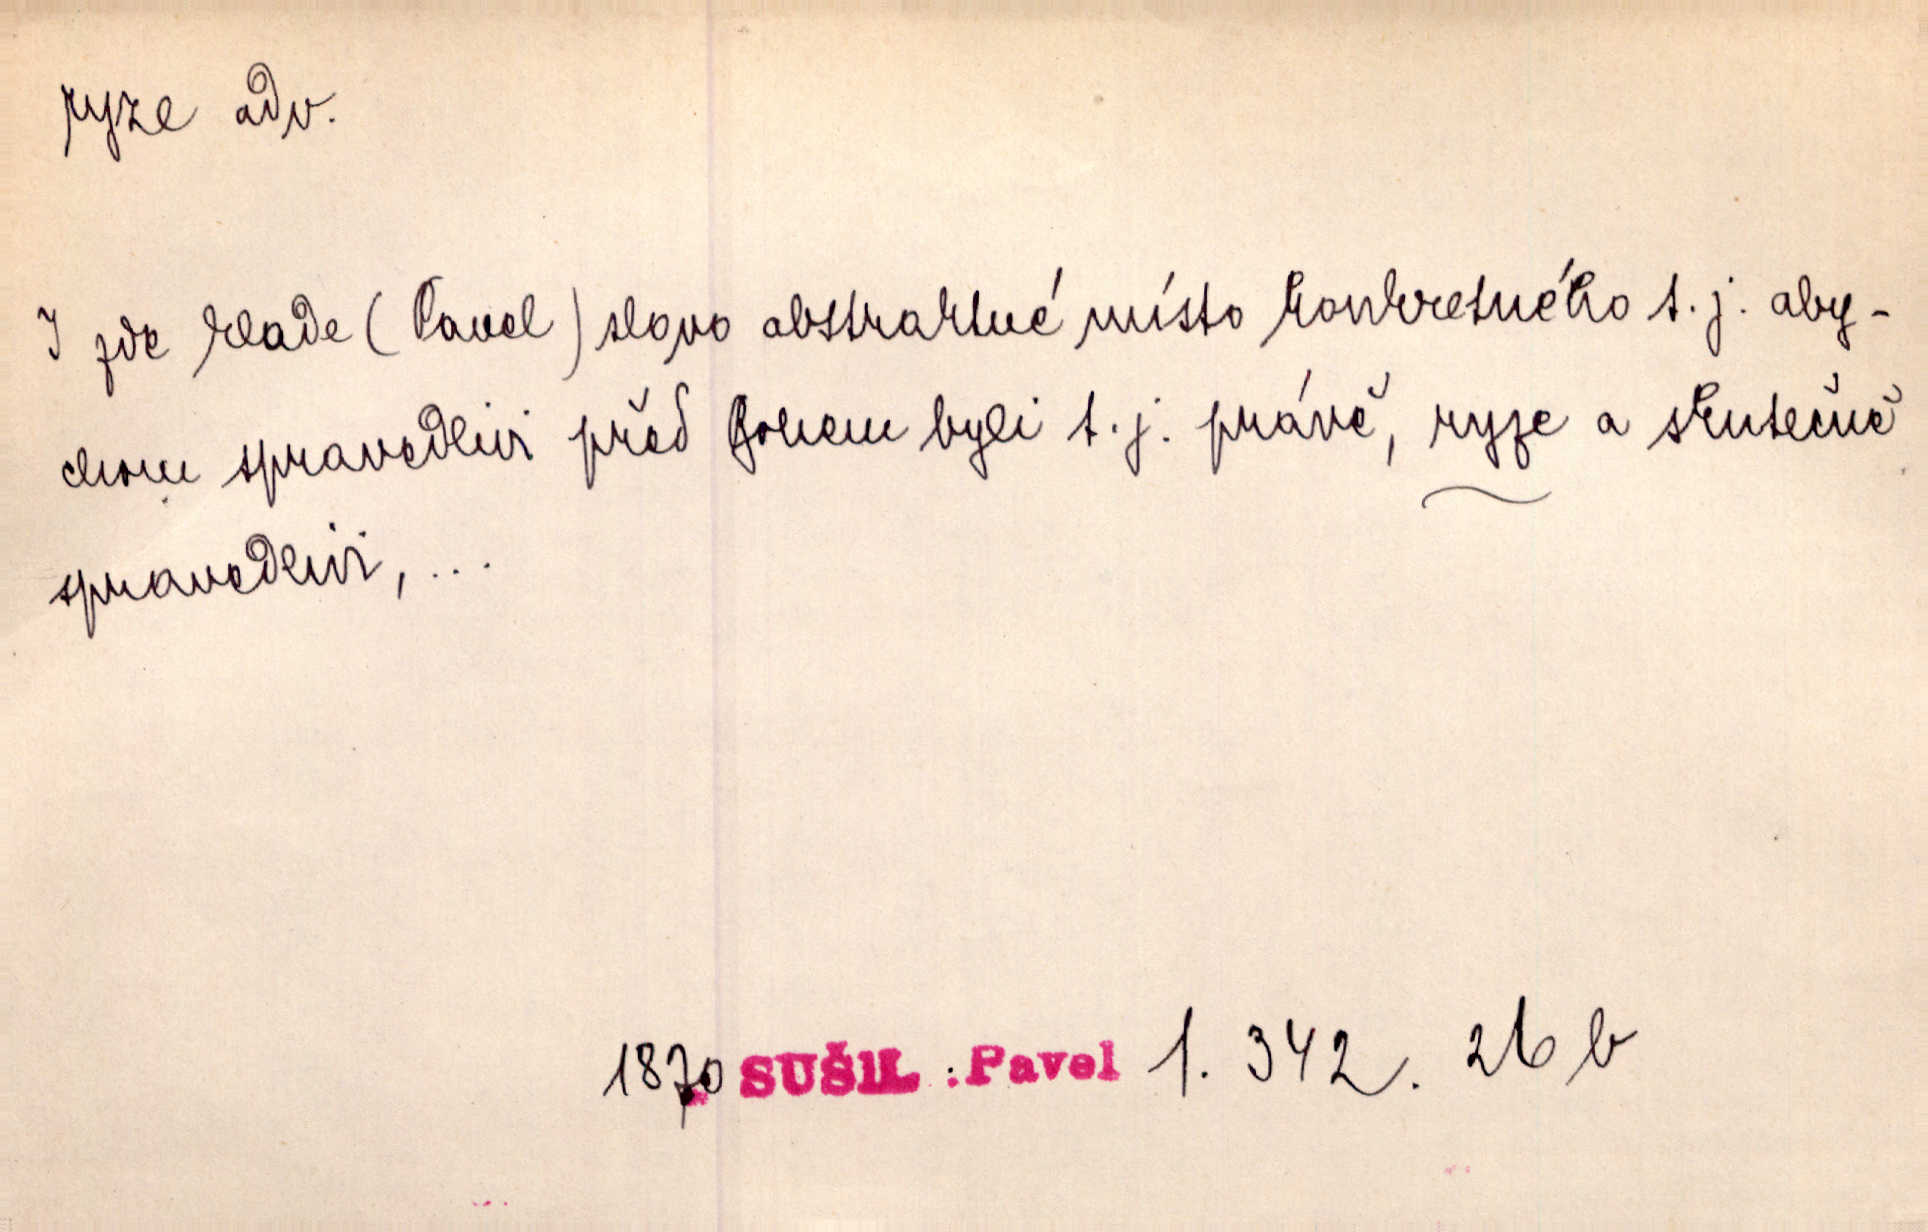 ryze adv.
I zde klade (Pavel) slovo abstraktné místo konkretného t. j. aby-
chom spravedlivi před Bohem byli t. j. právě, ryze a skutečně
spravedlivi, ...
1870 SUŠIL : Pavel 1. 342. 26 b